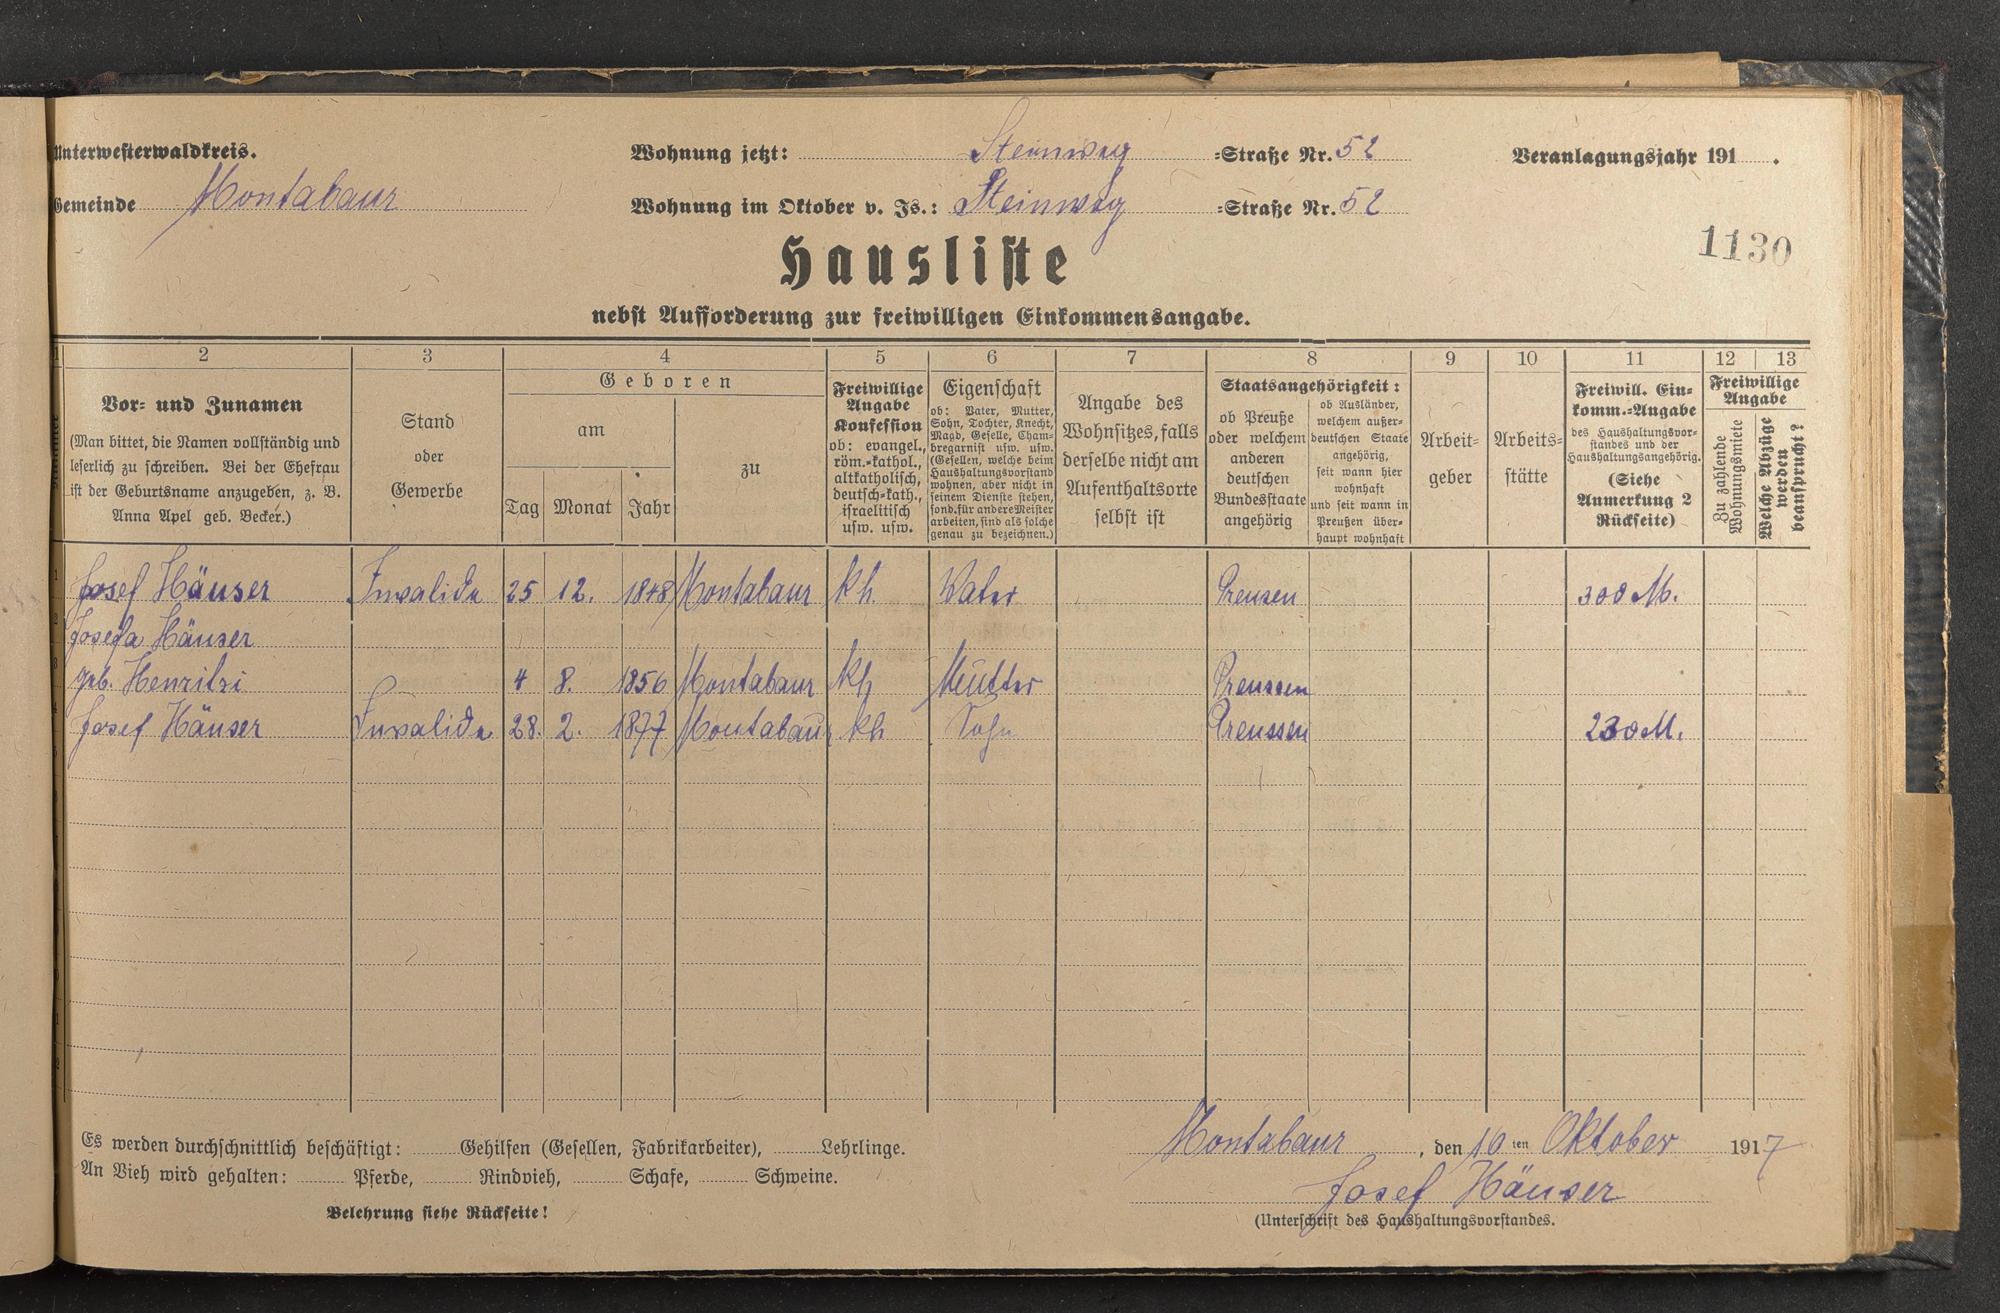 Unterwesterwaldkreis.
Wohnung jetzt: Steinweg =Straße Nr. 52
Veranlagungsjahr 191 .
Gemeinde Montabaur
Wohnung im Oktober v. Js.: Steinweg =Straße Nr. 52
1130
Hausliste
nebst Aufforderung zur freiwilligen Einkommensangabe.
1 2 3 4 5 6 7 8 9 10 11 12 13
Vor- und Zunamen
(Man bittet, die Namen vollständig und
leserlich zu schreiben. Bei der Ehefrau
ist der Geburtsname anzugeben, z. B.
Anna Apel geb. Becker.)
Stand
oder
Gewerbe
Geboren
am
Tag Monat Jahr
zu
Freiwillige
Angabe
Konfession
ob: evangel.,
röm.-kathol.,
altkatholisch,
deutsch-kath.,
israelitisch
usw. usw.
Eigenschaft
ob: Vater, Mutter,
Sohn, Tochter, Knecht,
Magd, Geselle, Cham-
bregarnist usw. usw.
(Gesellen, welche beim
Haushaltungsvorstand
wohnen, aber nicht in
seinem Dienste stehen,
sond. für andere Meister
arbeiten, sind als solche
genau zu bezeichnen.)
Angabe des
Wohnsitzes, falls
derselbe nicht am
Aufenthaltsorte
selbst ist
Staatsangehörigkeit:
ob Preuße
oder welchem
anderen
deutschen
Bundesstaate
angehörig
ob Ausländer,
welchem außer-
deutschen Staate
angehörig,
seit wann hier
wohnhaft
und seit wann in
Preußen über-
haupt wohnhaft
Arbeit-
geber
Arbeits-
stätte
Freiwill. Ein-
komm.-Angabe
des Haushaltungsvor-
standes und der
Haushaltungsangehörig.
(Siehe
Anmerkung 2
Rückseite)
Freiwillige
Angabe
Zu zahlende
Wohnungsmiete
Welche Abzüge
werden
beansprucht?
Josef Häuser Invalide 25 12. 1848 Montabaur kh. Vater Preusen 300 M.
Josefa Häuser
geb. Henritzi 4 8. 1856 Montabaur kh Mutter Preussen
Josef Häuser Invalide 28. 2. 1877 Montabaur kh Sohn Preussen 230 M.
Es werden durchschnittlich beschäftigt: Gehilfen (Gesellen, Fabrikarbeiter), Lehrlinge.
An Vieh wird gehalten: Pferde, Rindvieh, Schafe, Schweine.
Belehrung siehe Rückseite!
Montabaur, den 10 ten Oktober 1917
Josef Häuser
(Unterschrift des Haushaltungsvorstandes.